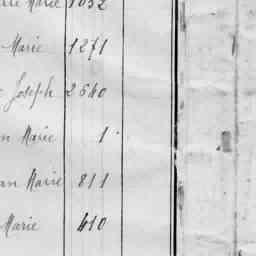 Marie 1052
Marie 1271
Joseph 2540
Marie 1.
Marie 811
Marie 410